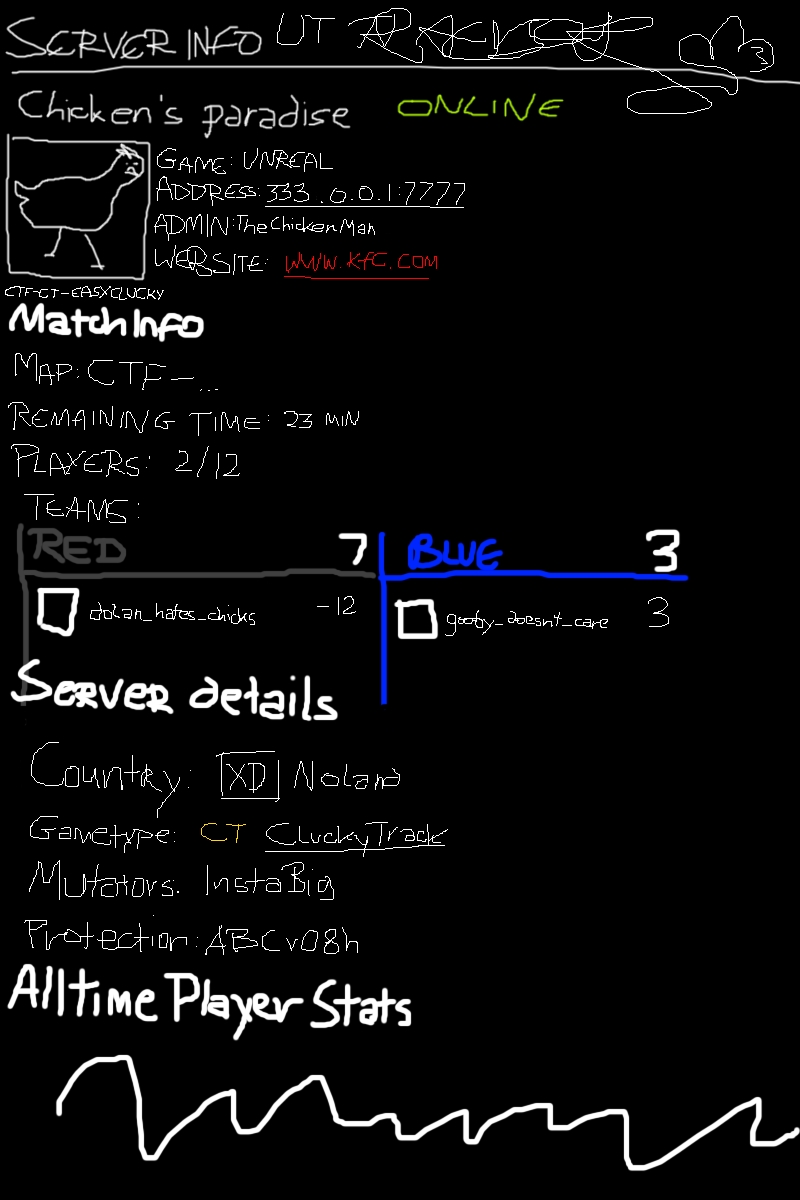 SERVER INFO UT
Chicken's paradise ONLINE
GAME: UNREAL
ADDRESS: 333.0.0.1:7777
ADMIN: TheChickenMan
WEBSITE: WWW.KFC.COM
CTF-CT-EASYCLUCKY
Match Info
MAP: CTF-...
REMAINING TIME: 23 MIN
PLAYERS: 2/12
TEAMS:
RED 7 BLUE 3
dolan_hates_chicks -12 gooby_doesnt_care 3
Server details
Country: XD Noland
Gametype: CT CluckyTrack
Mutators: InstaBig
Protection: ABCv08h
Alltime Player Stats